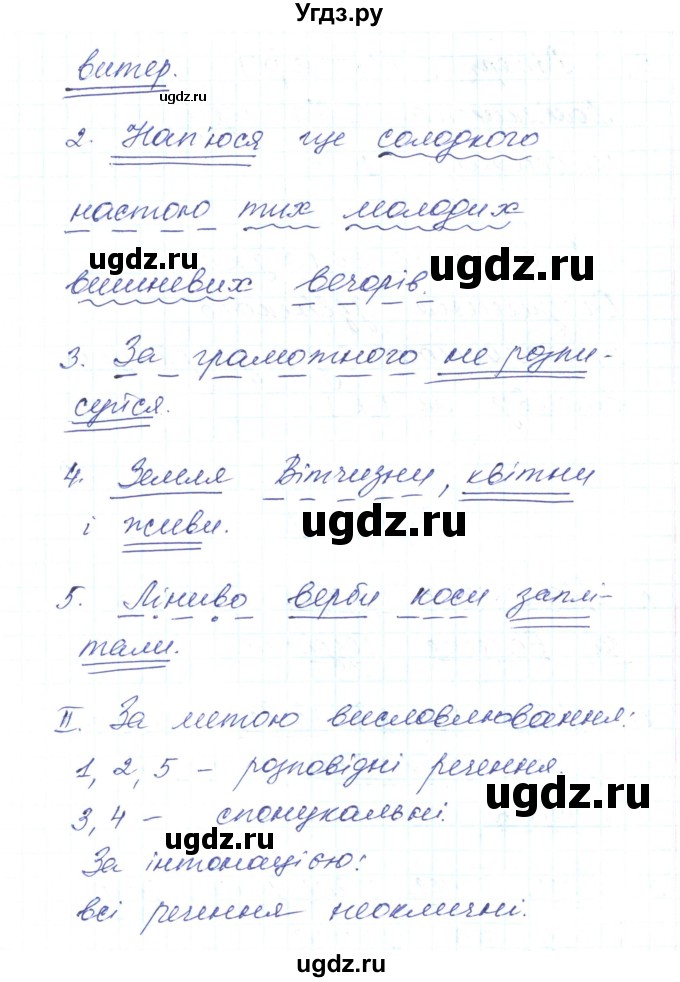 Угдз.ру
витер.
ugdz.ru
2. Нап'юся ще солодкого
настою тих молодих
ugdz.ru
ugdz.ru
вишневих вечорів.
3. За грамотного не розпи-
суйся.
ugdz.ru
4. Земля Вітчизни, квітни
і живи.
ugdz.ru
5. Ліниво верби коси заплі-
тали.
ugdz.ru
II. За метою висловлювання:
1, 2, 5 – розповідні речення.
ugdz.ru
3, 4 – спонукальні.
ugdz.ru
За інтонацією:
всі речення неокличні.
ugdz.ru